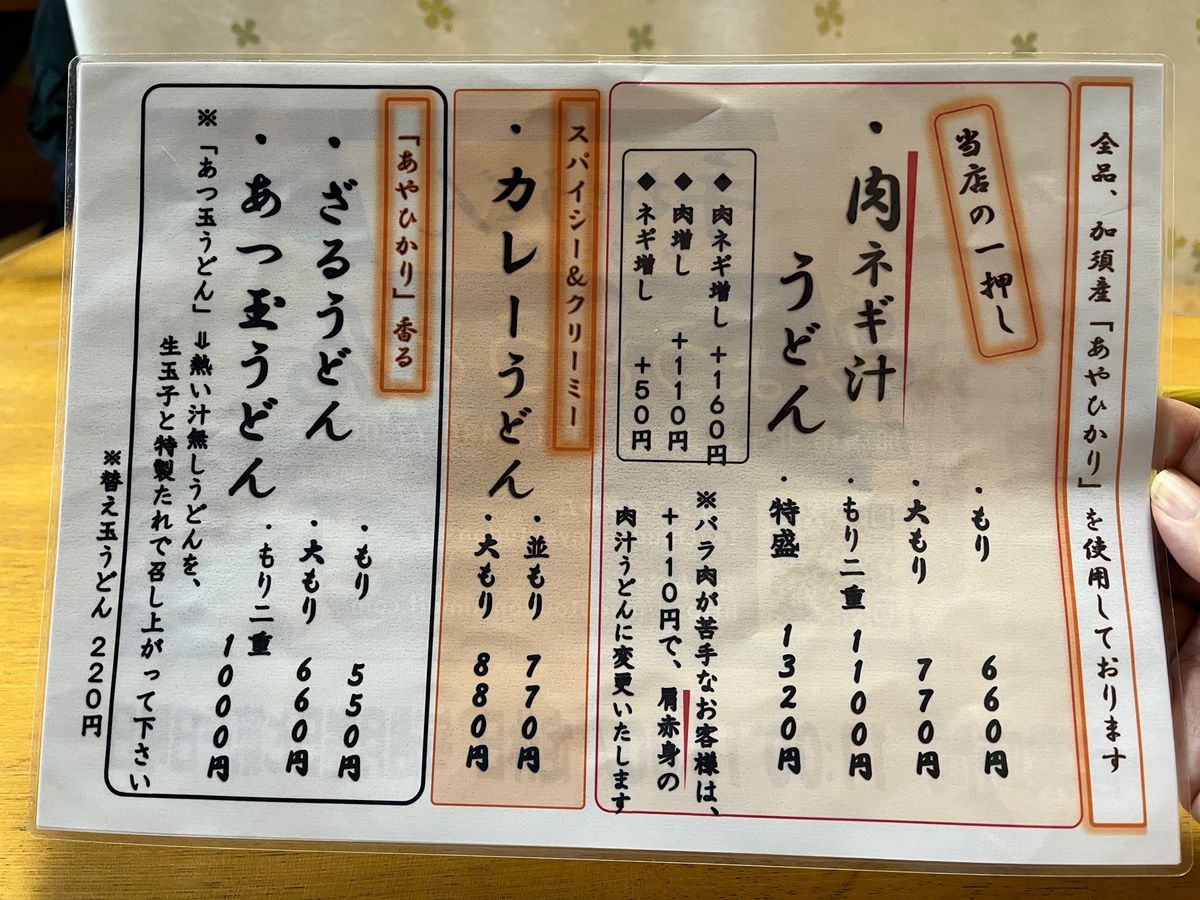 全品、加須産「あやひかり」を使用しております
当店の一押し
・肉ネギ汁
うどん
・もり 660円
・大もり 770円
・もり二重 1100円
・特盛 1320円
◆肉ネギ増し +160円
◆肉増し +110円
◆ネギ増し +50円
※バラ肉が苦手なお客様は、
+110円で、肩赤身の
肉汁うどんに変更いたします
スパイシー&クリーミー
・カレーうどん
・並もり 770円
・大もり 880円
「あやひかり」香る
・ざるうどん
・あつ玉うどん
・もり 550円
・大もり 660円
・もり二重 1000円
※「あつ玉うどん」⇒熱い汁無しうどんを、
生玉子と特製たれで召し上がって下さい
※替え玉うどん 220円